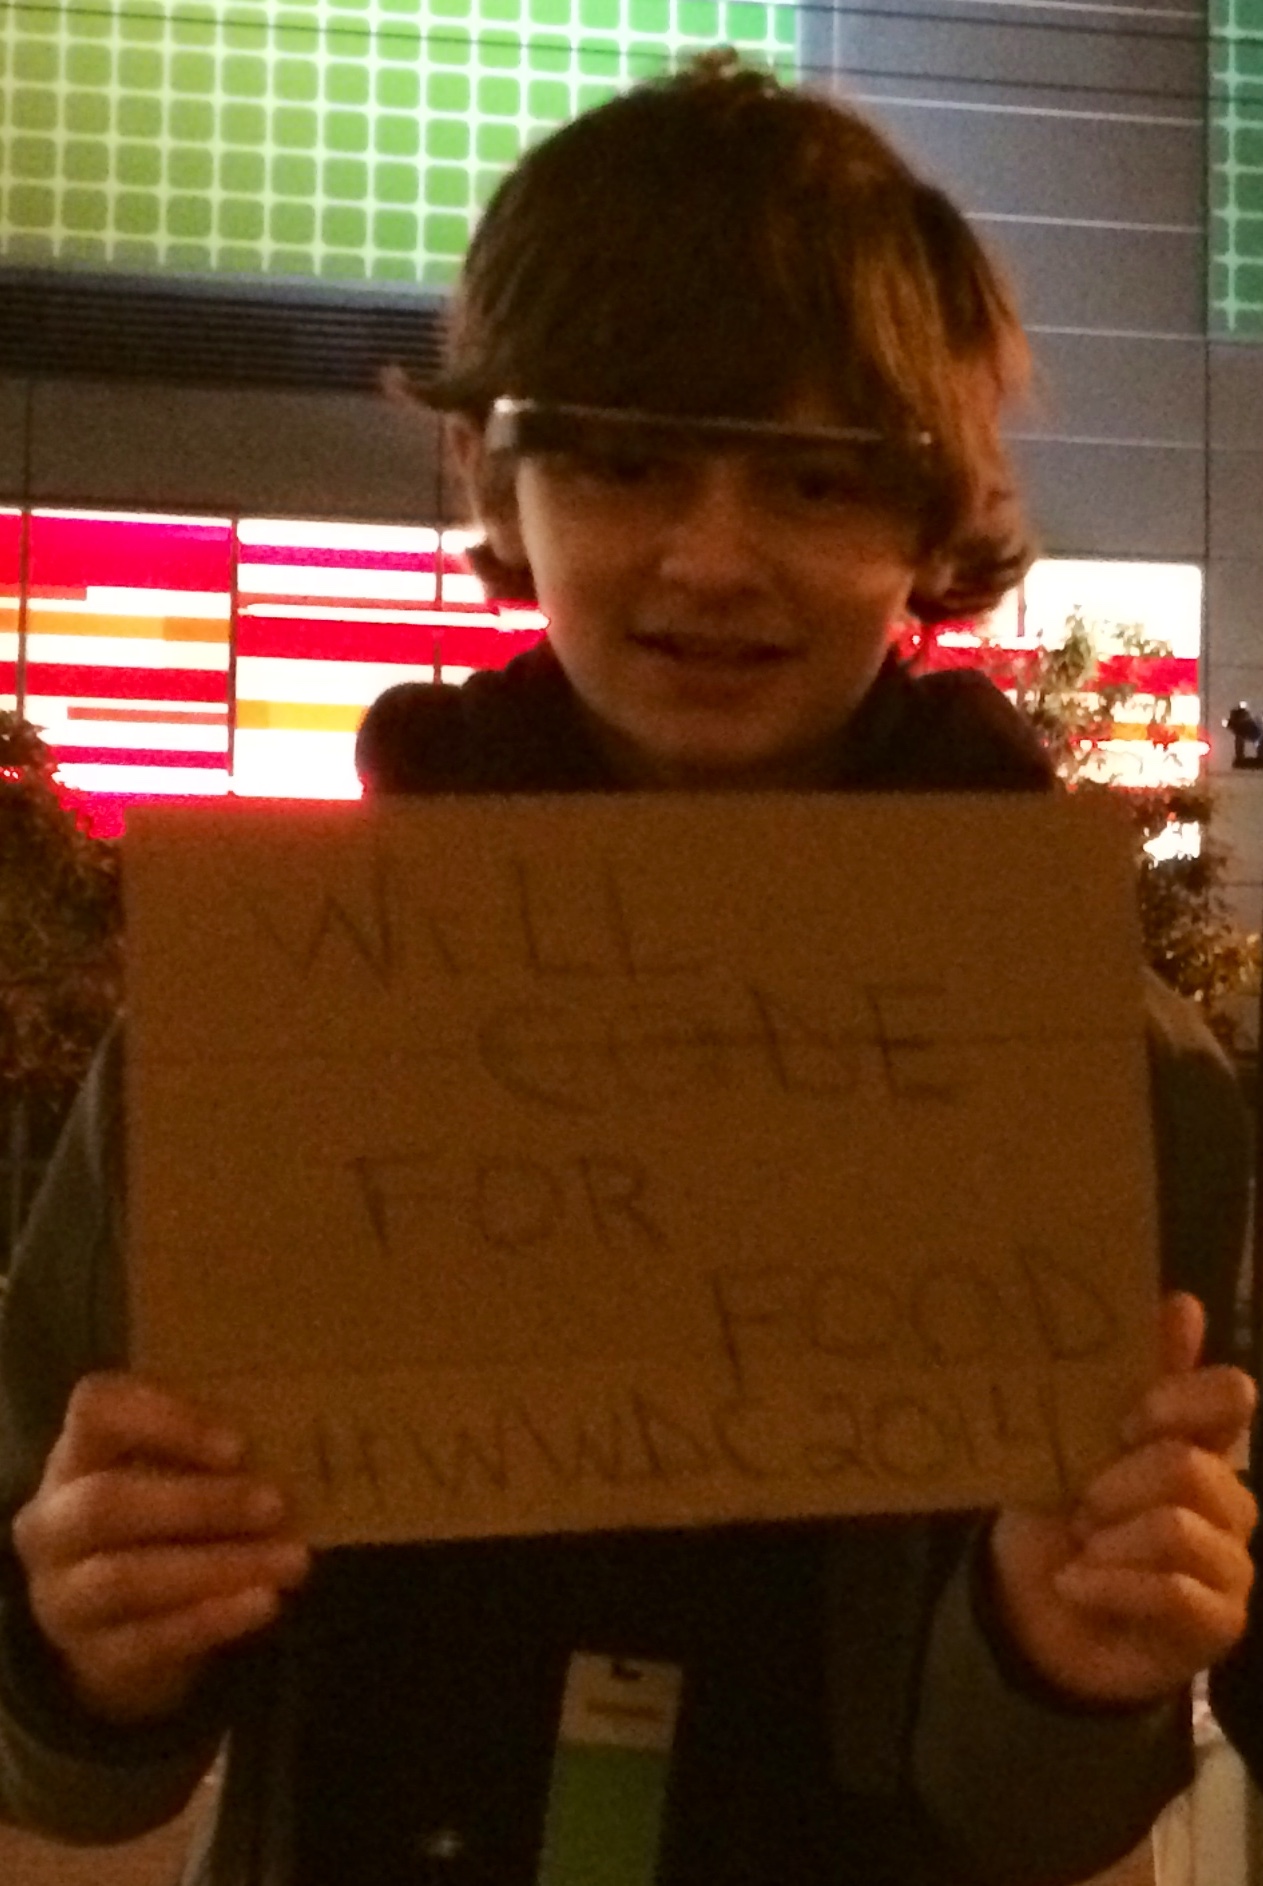 WiLL
CODE
FOR
FOOD
#WWDC2014